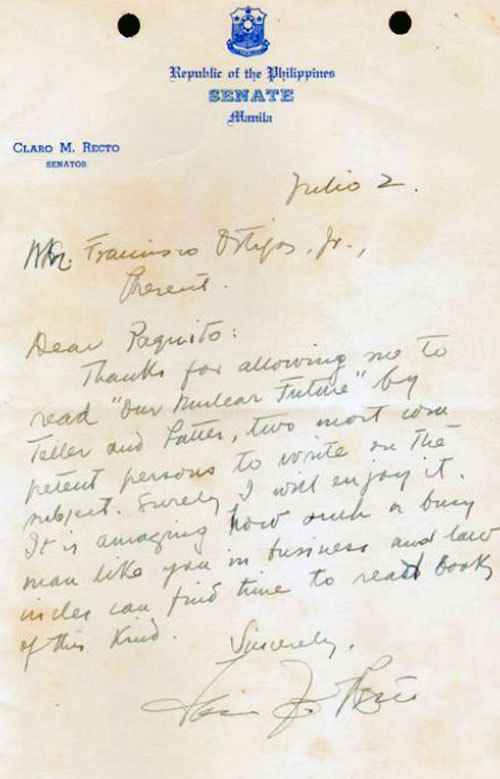 Republic of the Philippines
SENATE
Manila
CLARO M. RECTO
SENATOR
Julio 2.
Mr. Francisco Ortigas, Jr.,
Present.
Dear Paquito:
Thanks for allowing me to
read "Our Nuclear Future" by
Teller and Latter, two most com
petent persons to write on the
subject. Surely I will enjoy it.
It is amazing how such a busy
man like you in business and law
can find time to read books
of this kind.
Sincerely,
Recto